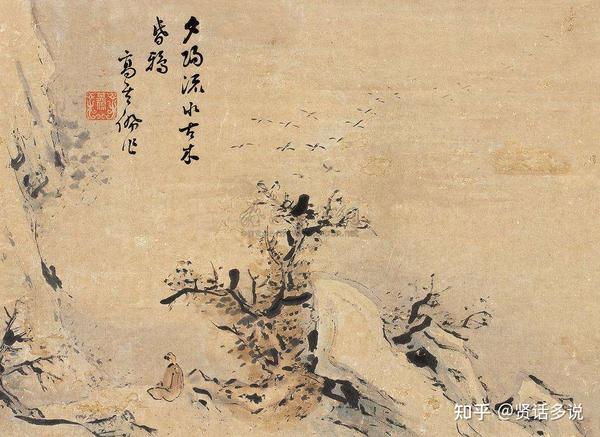 夕陽流水古木
昏鴉
高其佩作
知乎 @贤话多说